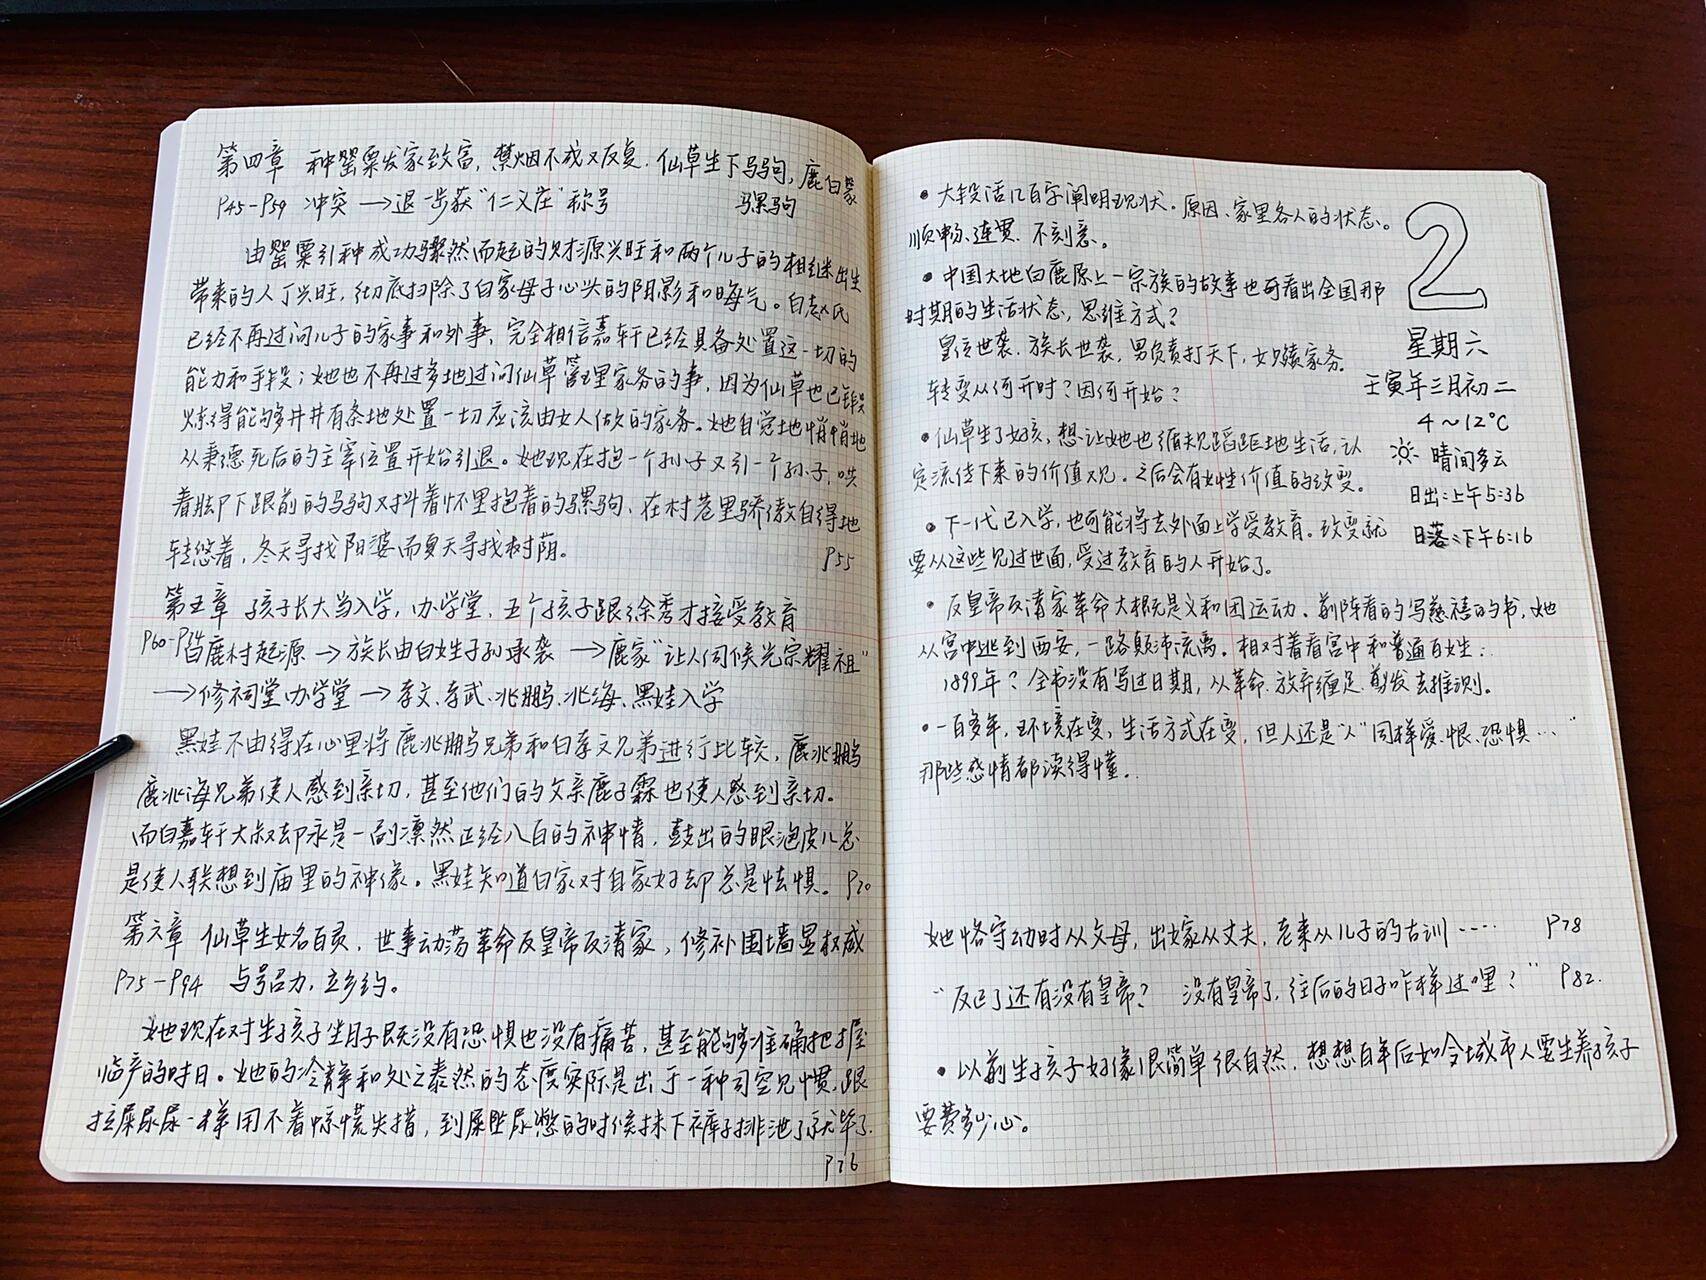 第四章 种罂粟发家致富，禁烟不成又反复.仙草生下马驹，鹿白家
P45-P59 冲突→退一步获"仁义庄"称号 骡驹
由罂粟引种成功骤然而起的财源兴旺和两个儿子的相继出生
带来的人丁兴旺，彻底扫除了白家母子心头的阴影和晦气。白赵氏
已经不再过问儿子的家事和外事，完全相信嘉轩已经具备处置这一切的
能力和手段；她也不再过多地过问仙草管理家务的事，因为仙草也已锻
炼得能够井井有条地处置一切应该由女人做的家务。她自觉地悄悄地
从秉德死后的主宰位置开始引退。她现在抱一个孙子又引一个孙子，哄
着脚下跟前的马驹又抖着怀里抱着的骡驹、在村巷里骄傲自得地
转悠着，冬天寻找阳婆而夏天寻找树荫。 P55
第五章 孩子长大当入学，办学堂，五个孩子跟徐秀才接受教育
P60-P74 白鹿村起源→族长由白姓子孙承袭→鹿家"让人伺候光宗耀祖"
→修祠堂办学堂→孝文、孝武、兆鹏、兆海、黑娃入学
黑娃不由得在心里将鹿兆鹏兄弟和白孝文兄弟进行比较，鹿兆鹏
鹿兆海兄弟使人感到亲切，甚至他们的父亲鹿子霖也使人感到亲切。
而白嘉轩大叔却永是一副凛然正经八百的神情，鼓出的眼泡皮儿总
是使人联想到庙里的神像。黑娃知道白家对自家好却总是怯惧。P70
第六章 仙草生女名百灵，世事动荡革命反皇帝反清家，修补围墙显权威
P75-P94 与号召力，立乡约。
她现在对生孩子坐月子既没有恐惧也没有痛苦，甚至能够准确把握
临产的时日。她的冷静和处之泰然的态度实际是出于一种司空见惯，跟
拉屎尿尿一样用不着惊慌失措，到屎坠尿憋的时候抹下裤子排泄了就毕了.
P76
• 大段话几百字阐明现状。原因、家里各人的状态。
顺畅、连贯、不刻意。
• 中国大地白鹿原上一宗族的故事也可看出全国那
时期的生活状态，思维方式？
皇位世袭、族长世袭，男负责打天下，女操家务。
转变从何开时？因何开始？
• 仙草生了女孩，想让她也循规蹈距地生活，认
定流传下来的价值观。之后会有女性价值的改变。
• 下一代已入学，也可能将去外面上学受教育。改变就
要从这些见过世面，受过教育的人开始了。
• 反皇帝反清家革命大概就是义和团运动。前阵看的写慈禧的书，她
从宫中逃到西安，一路颠沛流离。相对着看宫中和普通百姓：
1899年？全书没有写过日期，从革命、放弃缠足、剪发去推测。
• 一百多年，环境在变，生活方式在变，但人还是"人"同样爱、恨、恐惧…"
那些感情都读得懂..
她恪守幼时从父母，出嫁从丈夫，老来从儿子的古训…… P78
"反正了还有没有皇帝？ 没有皇帝了，往后的日子咋样过哩？" P82.
• 以前生孩子好像很简单很自然，想想百年后如今城市人要生养孩子
要费多少心。
2
星期六
壬寅年三月初二
4～12℃
晴间多云
日出：上午5:36
日落：下午6:16